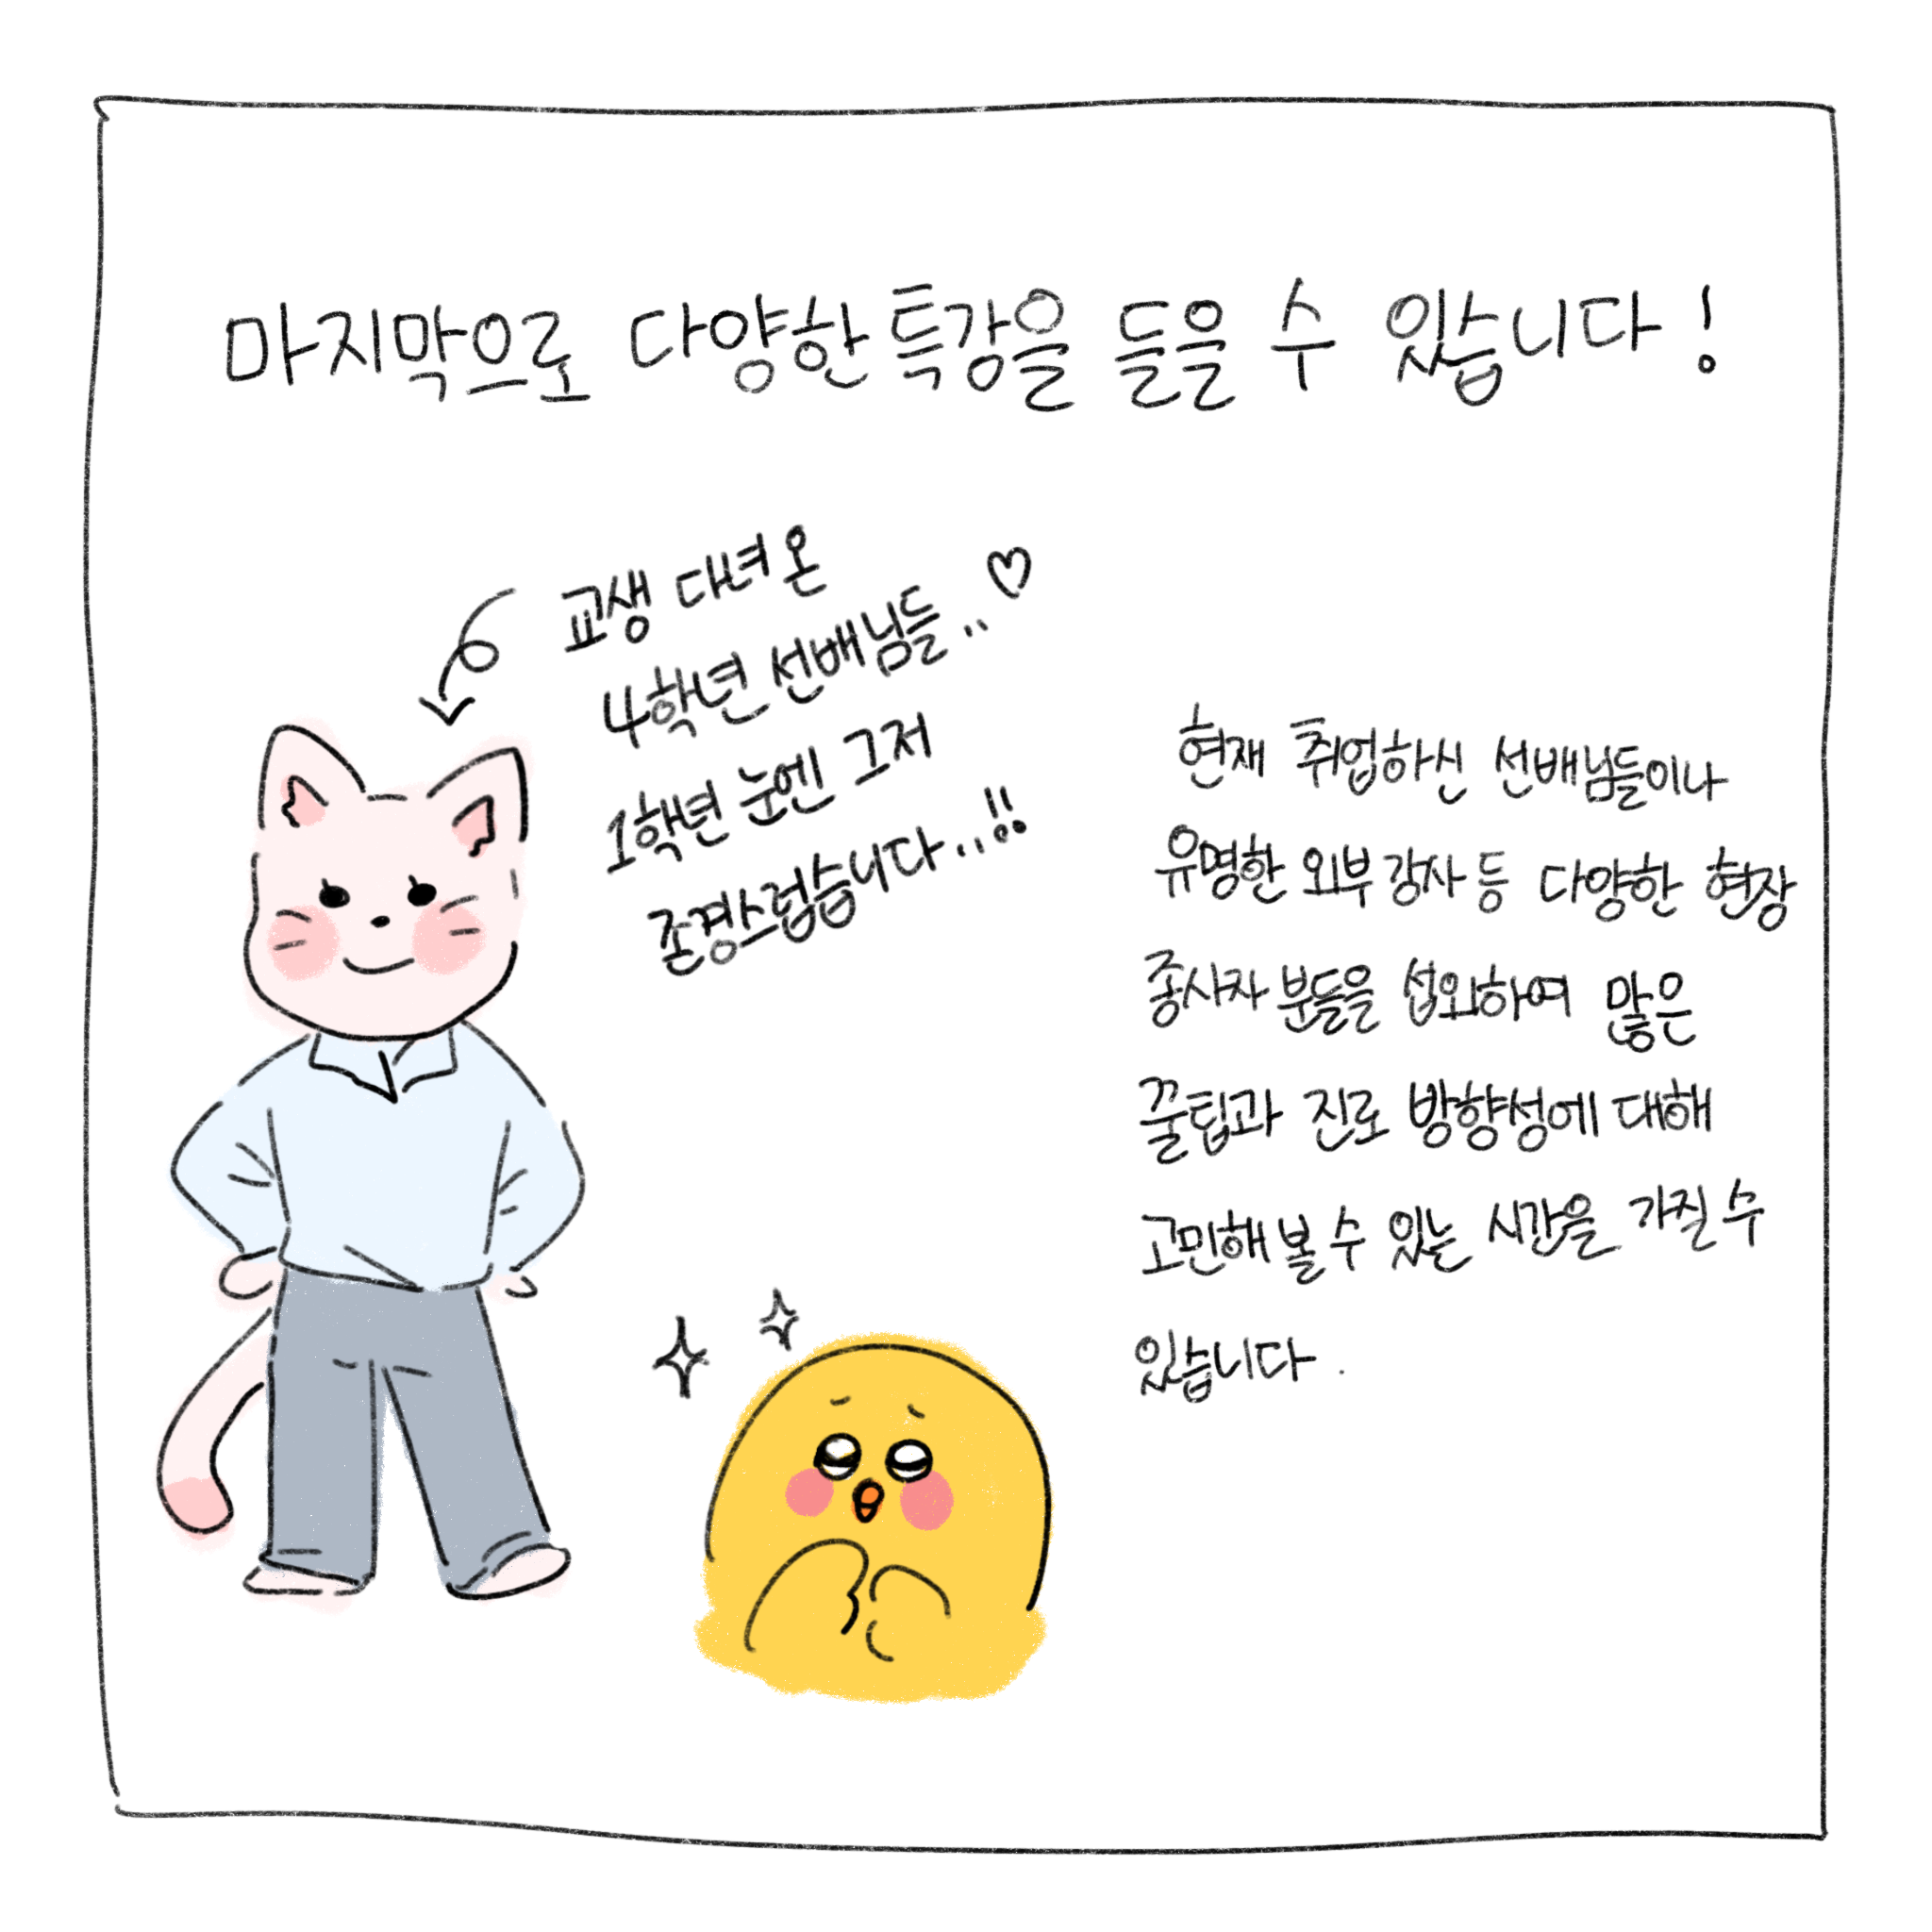 마지막으로 다양한 특강을 들을 수 있습니다!
교생 다녀온
4학년 선배님들..♡
1학년 눈엔 그저
존경스럽습니다..!!
현재 취업하신 선배님들이나
유명한 외부 강사 등 다양한 현장
종사자 분들을 섭외하여 많은
꿀팁과 진로 방향성에 대해
고민해 볼 수 있는 시간을 가질 수
있습니다.